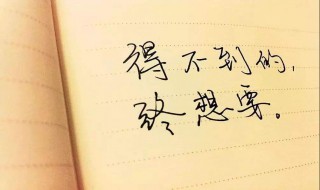 得不到的,
终想要。